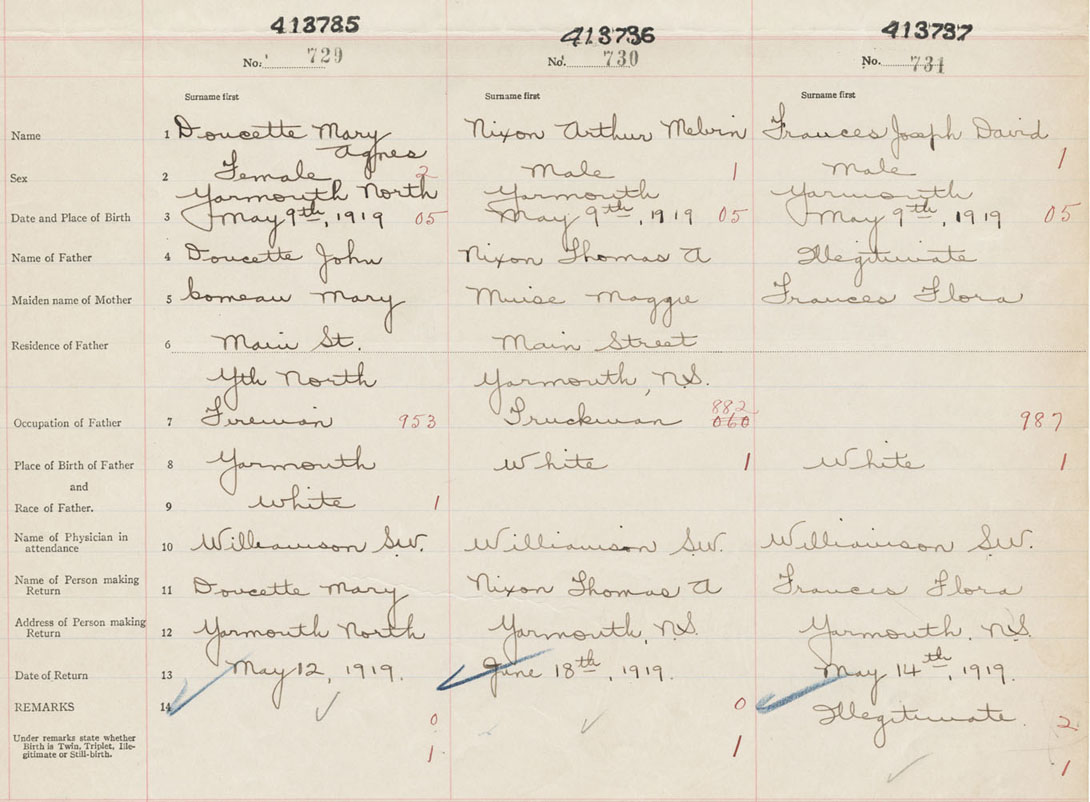 413785 413736 413737
No. 729 No. 730 No. 731
Surname first Surname first Surname first
Name 1 Doucette Mary Agnes Nixon Arthur Melvin Frances Joseph David
Sex 2 Female 2 Male 1 Male 1
Yarmouth North Yarmouth Yarmouth
Date and Place of Birth 3 May 9th, 1919 05 May 9th, 1919 05 May 9th, 1919 05
Name of Father 4 Doucette John Nixon Thomas A Illegitimate
Maiden name of Mother 5 Comeau Mary Muise Maggie Frances Flora
Residence of Father 6 Main St. Main Street
Yth North Yarmouth, N.S.
882
Occupation of Father 7 Fireman 953 Truckman 060 987
Place of Birth of Father 8 Yarmouth White 1 White 1
and
Race of Father. 9 White 1
Name of Physician in
attendance 10 Williamson S.W. Williamson S.W. Williamson S.W.
Name of Person making
Return 11 Doucette Mary Nixon Thomas A Frances Flora
Address of Person making
Return 12 Yarmouth North Yarmouth, N.S. Yarmouth, N.S.
Date of Return 13 May 12, 1919. June 18th, 1919. May 14th, 1919.
REMARKS 14 0 0 Illegitimate. 2
Under remarks state whether
Birth is Twin, Triplet, Ille-
gitimate or Still-birth. 1 1 1